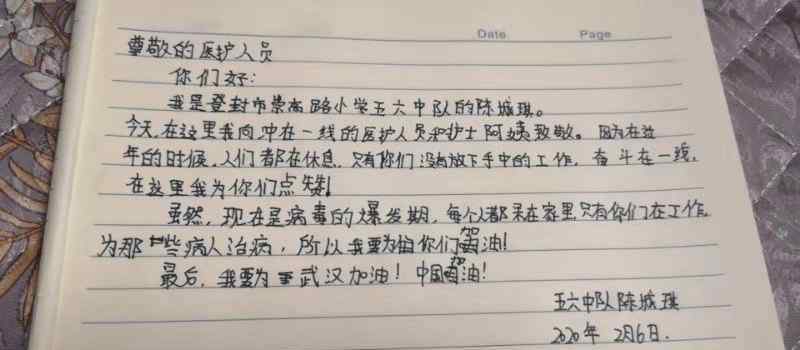 Date Page
尊敬的医护人员
你们好:
我是登封市崇高路小学五六中队的陈城琪。
今天,在这里我向冲在一线的医护人员和护士阿姨致敬。因为在过
年的时候,人们都在休息,只有你们没有放下手中的工作,奋斗在一线,
在这里我为你们点赞!
虽然,现在是病毒的爆发期,每个人都呆在家里,只有你们在工作,
为那一些病人治病,所以我要为你们加油!
最后,我要为武汉加油!中国加油!
五六中队陈城琪
2020年2月6日.